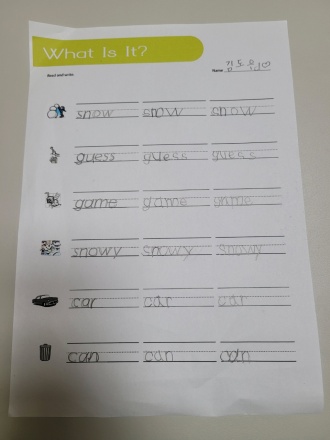 What Is It?
Read and write.
Name
snow snow snow
guess guess guess
game game game
snowy snowy snowy
car car car
can can can